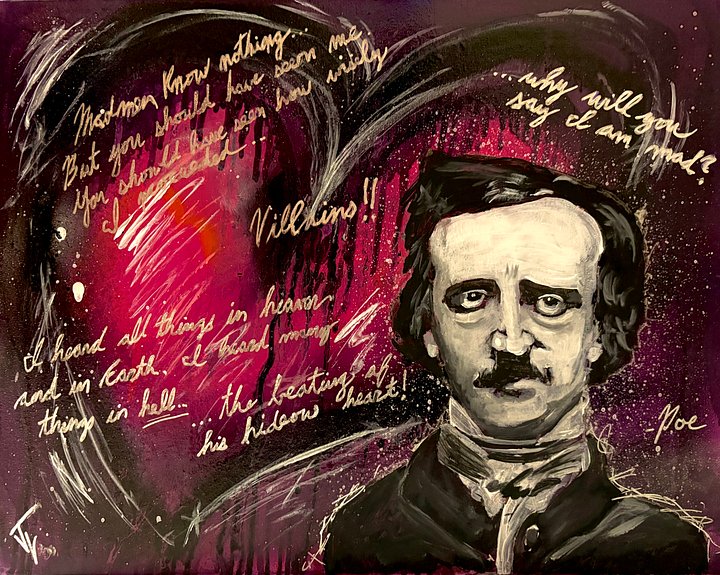 Madmen know nothing...
But you should have seen me
You should have seen how wisely
I proceeded ...
...why will you
say I am mad?
Villains!!
I heard all things in heaven
and in Earth. I heard many
things in hell...
...the beating of
his hideous heart!
-Poe